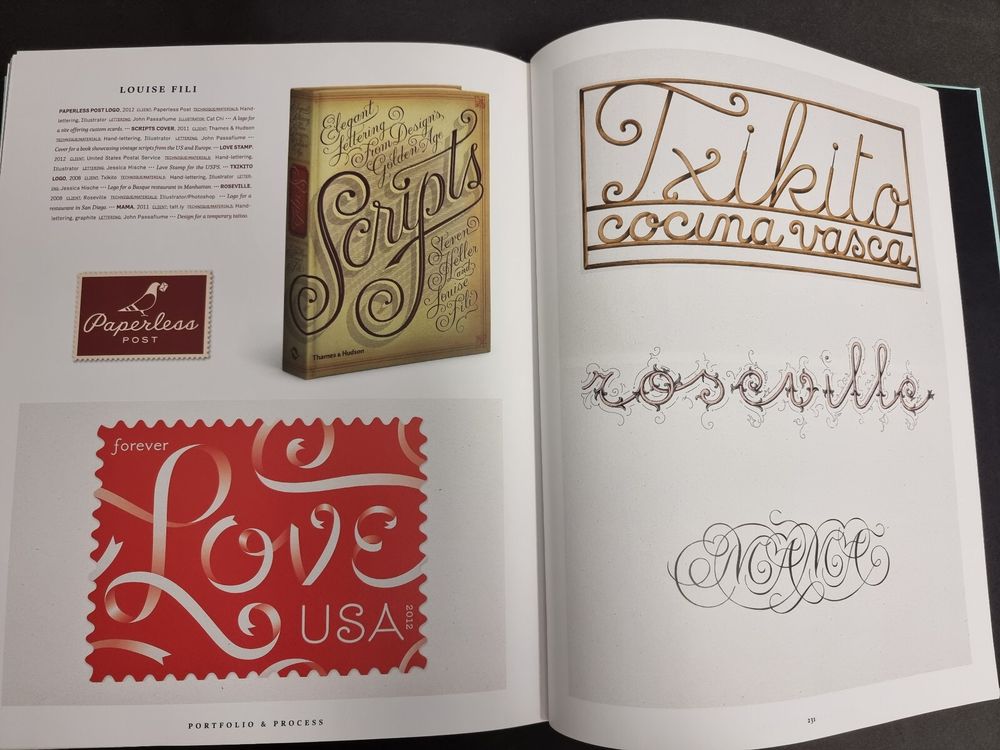 LOUISE FILI
PAPERLESS POST LOGO, 2012 CLIENT: Paperless Post TECHNIQUE/MATERIALS: Hand-
lettering, Illustrator LETTERING: John Passafiume ILLUSTRATOR: Cat Chi ••• A logo for
a site offering custom ecards. ••• SCRIPTS COVER, 2011 CLIENT: Thames & Hudson
TECHNIQUE/MATERIALS: Hand-lettering, Illustrator LETTERING: John Passafiume •••
Cover for a book showcasing vintage scripts from the US and Europe. ••• LOVE STAMP,
2012 CLIENT: United States Postal Service TECHNIQUE/MATERIALS: Hand-lettering,
Illustrator LETTERING: Jessica Hische ••• Love Stamp for the USPS. ••• TXIKITO
LOGO, 2008 CLIENT: Txikito TECHNIQUE/MATERIALS: Hand-lettering, Illustrator LETTER-
ING: Jessica Hische ••• Logo for a Basque restaurant in Manhattan. ••• ROSEVILLE,
2008 CLIENT: Roseville TECHNIQUE/MATERIALS: Illustrator/Photoshop ••• Logo for a
restaurant in San Diego. ••• MAMA, 2011 CLIENT: tatt.ly TECHNIQUE/MATERIALS: Hand-
lettering, graphite LETTERING: John Passafiume ••• Design for a temporary tattoo.
Elegant
Lettering
from Design's
Golden Age
Scripts
Steven
Heller
and
Louise
Fili
Thames & Hudson
Paperless
POST
forever
LOVE
USA
2012
PORTFOLIO & PROCESS
Txikito
cocina vasca
roseville
MAMA
231